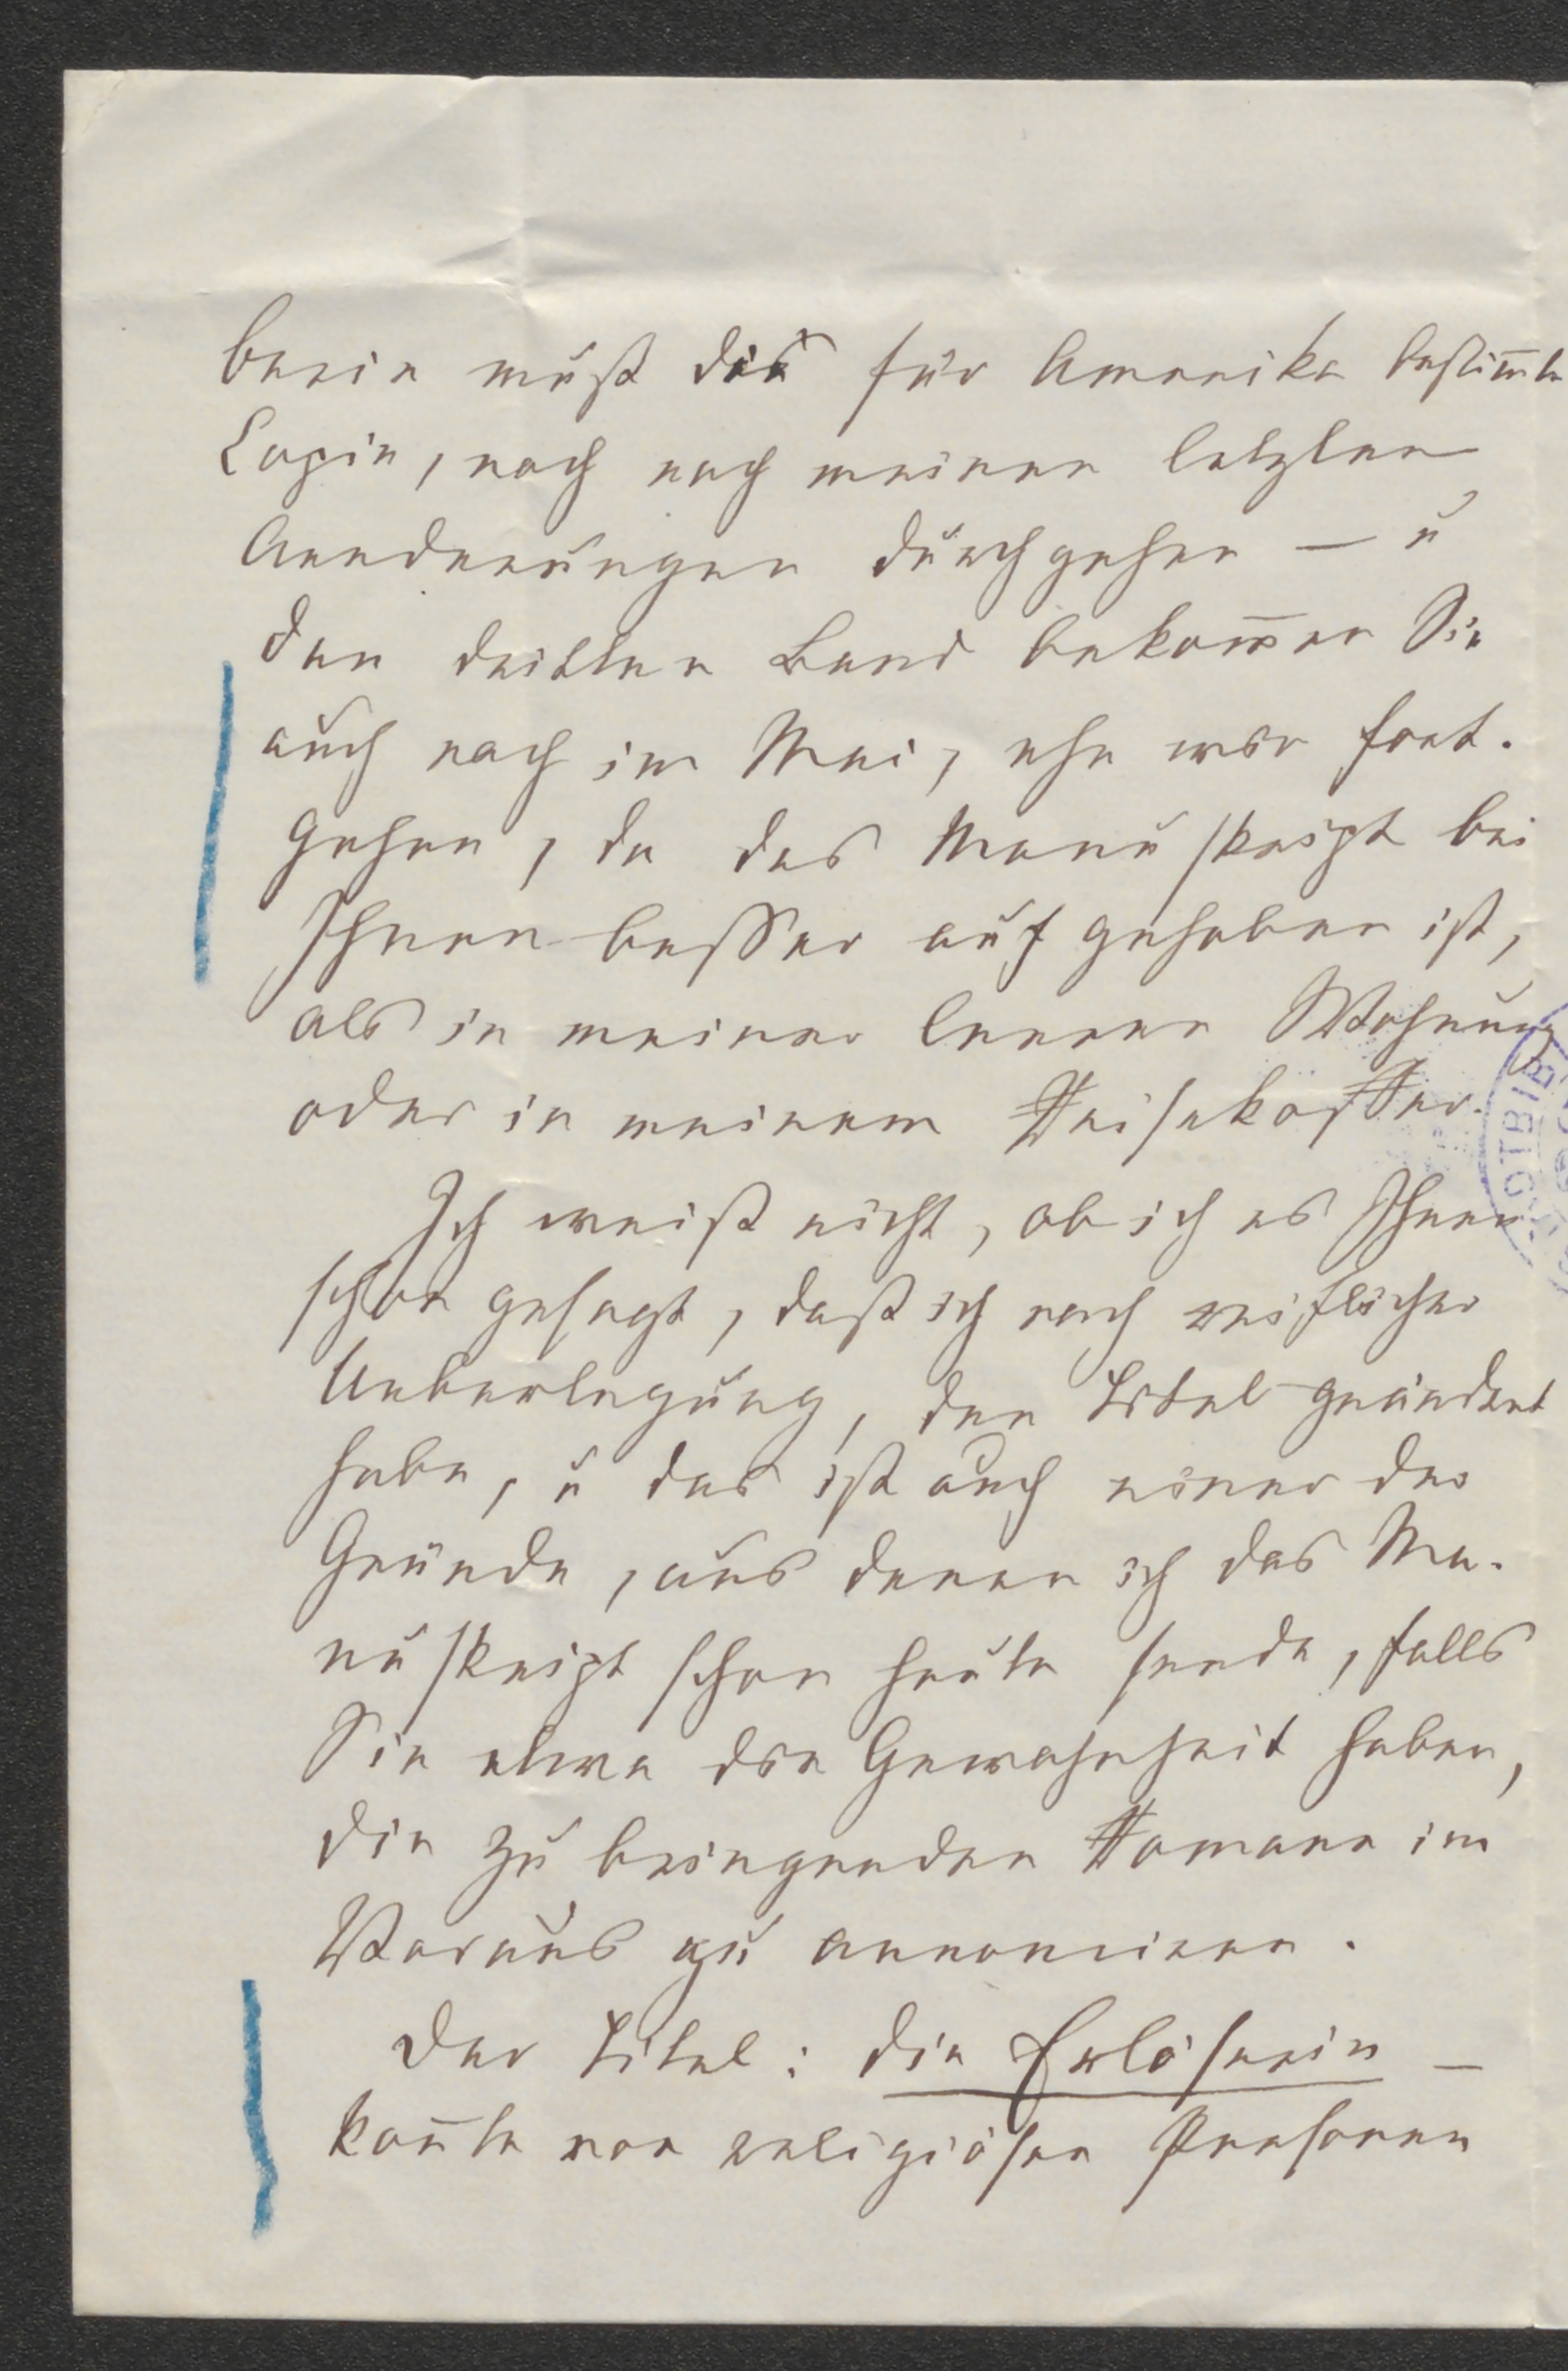 berin muß die für Amerika bestim̄te
Copie, noch nach meinen letzten
Aenderungen durchgehen — u
den dritten Band bekom̄en Sie
auch noch im Mai, ehe wir fort-
gehen, da das Manuskript bei
Ihnen besser auf gehoben ist,
als in meiner leeren Wohnung
oder in meinem Reisekoffer.
Ich weiß nicht, ob ich es Ihnen
schon gesagt, daß ich nach reiflicher
Ueberlegung, den Titel geändert
habe, u das ist auch einer der
Gründe, aus denen ich das Ma-
nuskript schon heute sende, falls
Sie etwa die Gewohnheit haben,
die zu bringenden Romane im
Voraus zu annonciren.
Der Titel: die Erlöserin —
kon̄te von religiösen Personen